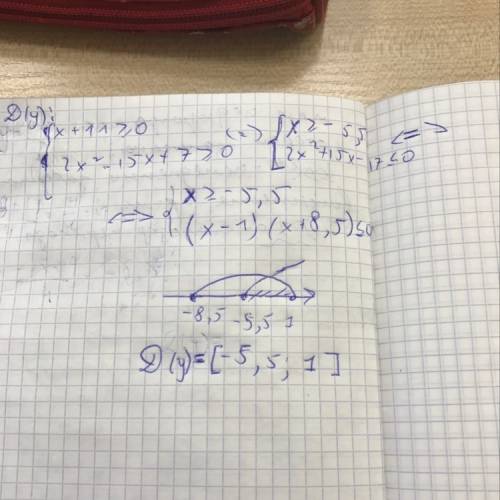 D(y):
{ x + 11 ≥ 0
2x² - 15x + 7 ≥ 0 <=> { x ≥ -5,5
2x² + 15x - 17 ≤ 0 <=>
<=> { x ≥ -5,5
(x-1)(x+8,5) ≤ 0
-8,5 -5,5 1
D(y) = [-5,5; 1]